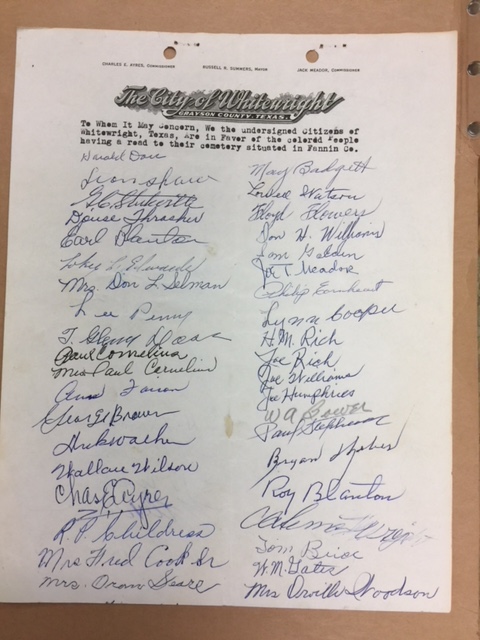 CHARLES E. AYRES, COMMISSIONER
RUSSELL R. SUMMERS, MAYOR
JACK MEADOR, COMMISSIONER
The City of Whitewright
GRAYSON COUNTY, TEXAS.
To Whom It May Concern, We the undersigned Citizens of
Whitewright, Texas, Are in Favor of the colored People
having a road to their cemetery situated in Fannin Co.
Harold Doss
Leon
Douse Thrasher
Carl Blanton
Mrs. Don L. Selman
Lee Penny
T. Glenn Doss
Paul Cornelius
Mrs Paul Cornelius
George Brown
Wallace Wilson
Chas E Ayres
R. P. Childress
Mrs Fred Cook Sr
Mrs. Oram
May Badgett
Louise Watson
Floyd Flowers
Jon H. Williams
Tom
Joe T. Meador
Philip Earnheart
Lynn Cooper
H. M. Rich
Joe Rich
Joe Williams
Joe Humphries
W A
Paul Stephens
Bryan
Roy Blanton
Tom
W. M. Gates
Mrs Orville Woodson